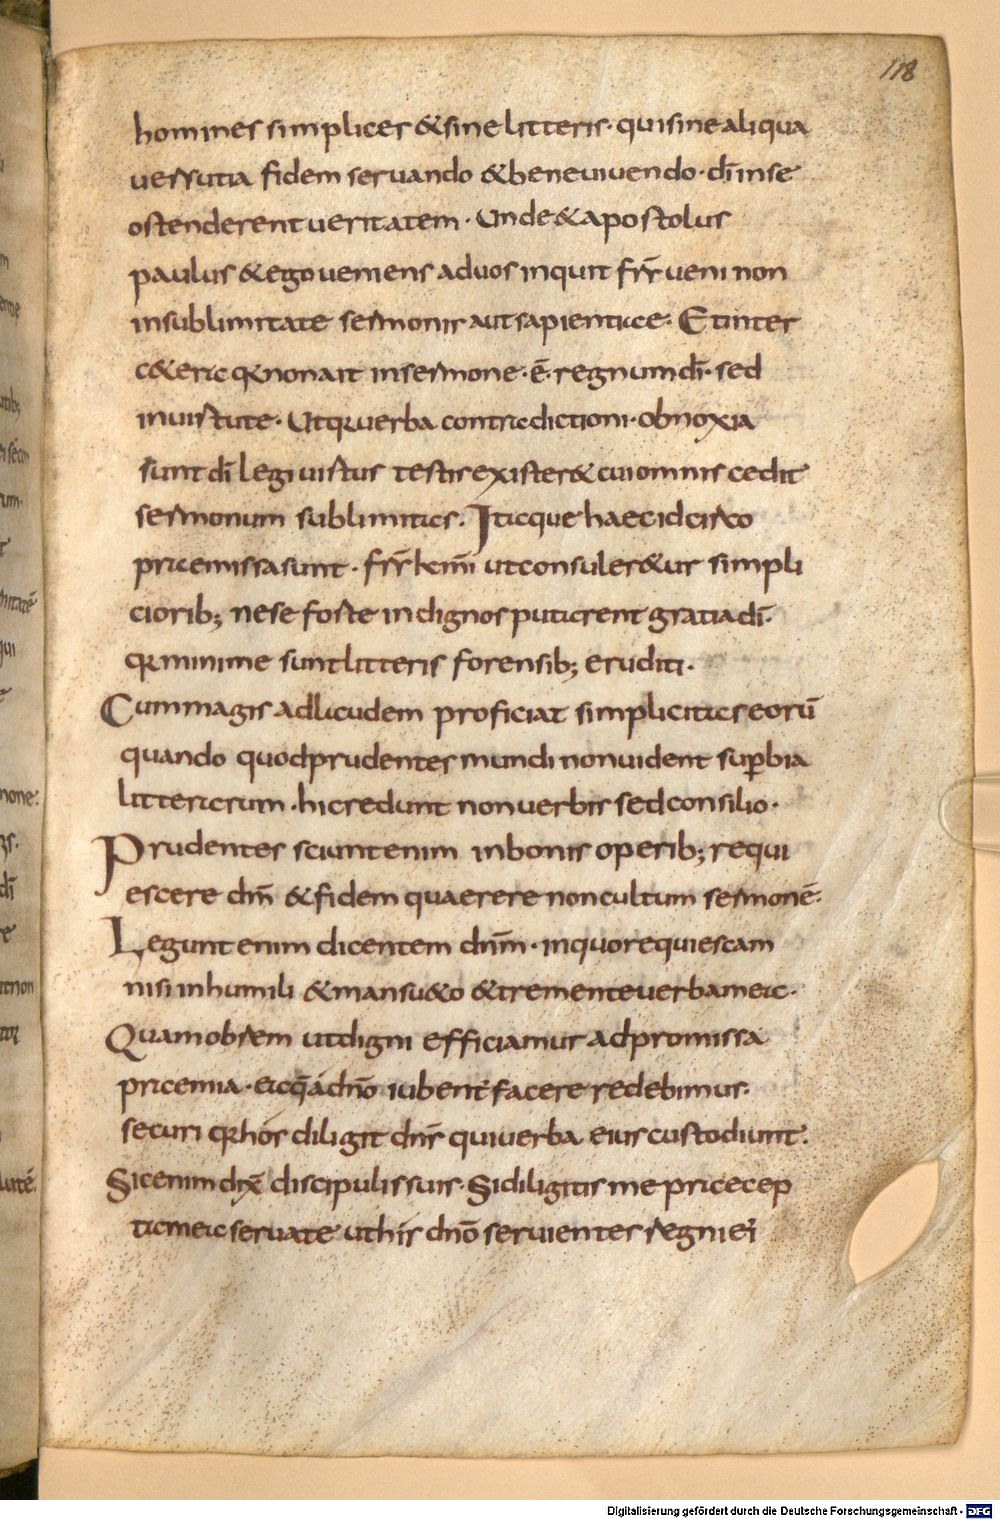 118
homines simplices & sine litteris· qui sine aliqua
uersutia fidem seruando & bene uiuendo· dī in se
ostenderent ueritatem· Unde & apostolus
paulus & ego ueniens ad uos inquit fr̄r ueni non
in sublimitate sermonis aut sapientiae· Et inter
c&era q̄ non ait in sermone· ē· regnum dī· sed
in uirtute· Ut q̄ uerba contradictioni· obnoxia
sunt dī legi uirtus testis exister& cui omnis cedit
sermonum sublimitas· Itaque haec idcirco
praemissa sunt· fr̄r kr̄mi ut consuler&ur simpli
ciorib; ne se forte indignos putarent gratia dī·
q̄ minime sunt litteris forensib; eruditi·
Cum magis ad laudem proficiat simplicitas eorū
quando quod prudentes mundi non uident sup̱bia
litterarum· hi credunt non uerbis sed consilio·
Prudentes sciunt enim in bonis operib; requi
escere dm̄ & fidem quaerere non cultum sermonē·
Legunt enim dicentem dnm̄· in quo requiescam
nisi in humili & mansu&o & tremente uerba mea·
Quam ob rem ut digni efficiamur ad promissa
praemia· ea q̄ a dn̄o iubent facere redebimus·
securi q̄ hos diligit dn̄s qui uerba eius custodiunt·
Sic enim dix̄ discipulis suis· Si diligitis me praecep
ta mea seruate ut his dn̄o seruientes regni ei
Digitalisierung gefördert durch die Deutsche Forschungsgemeinschaft - DFG